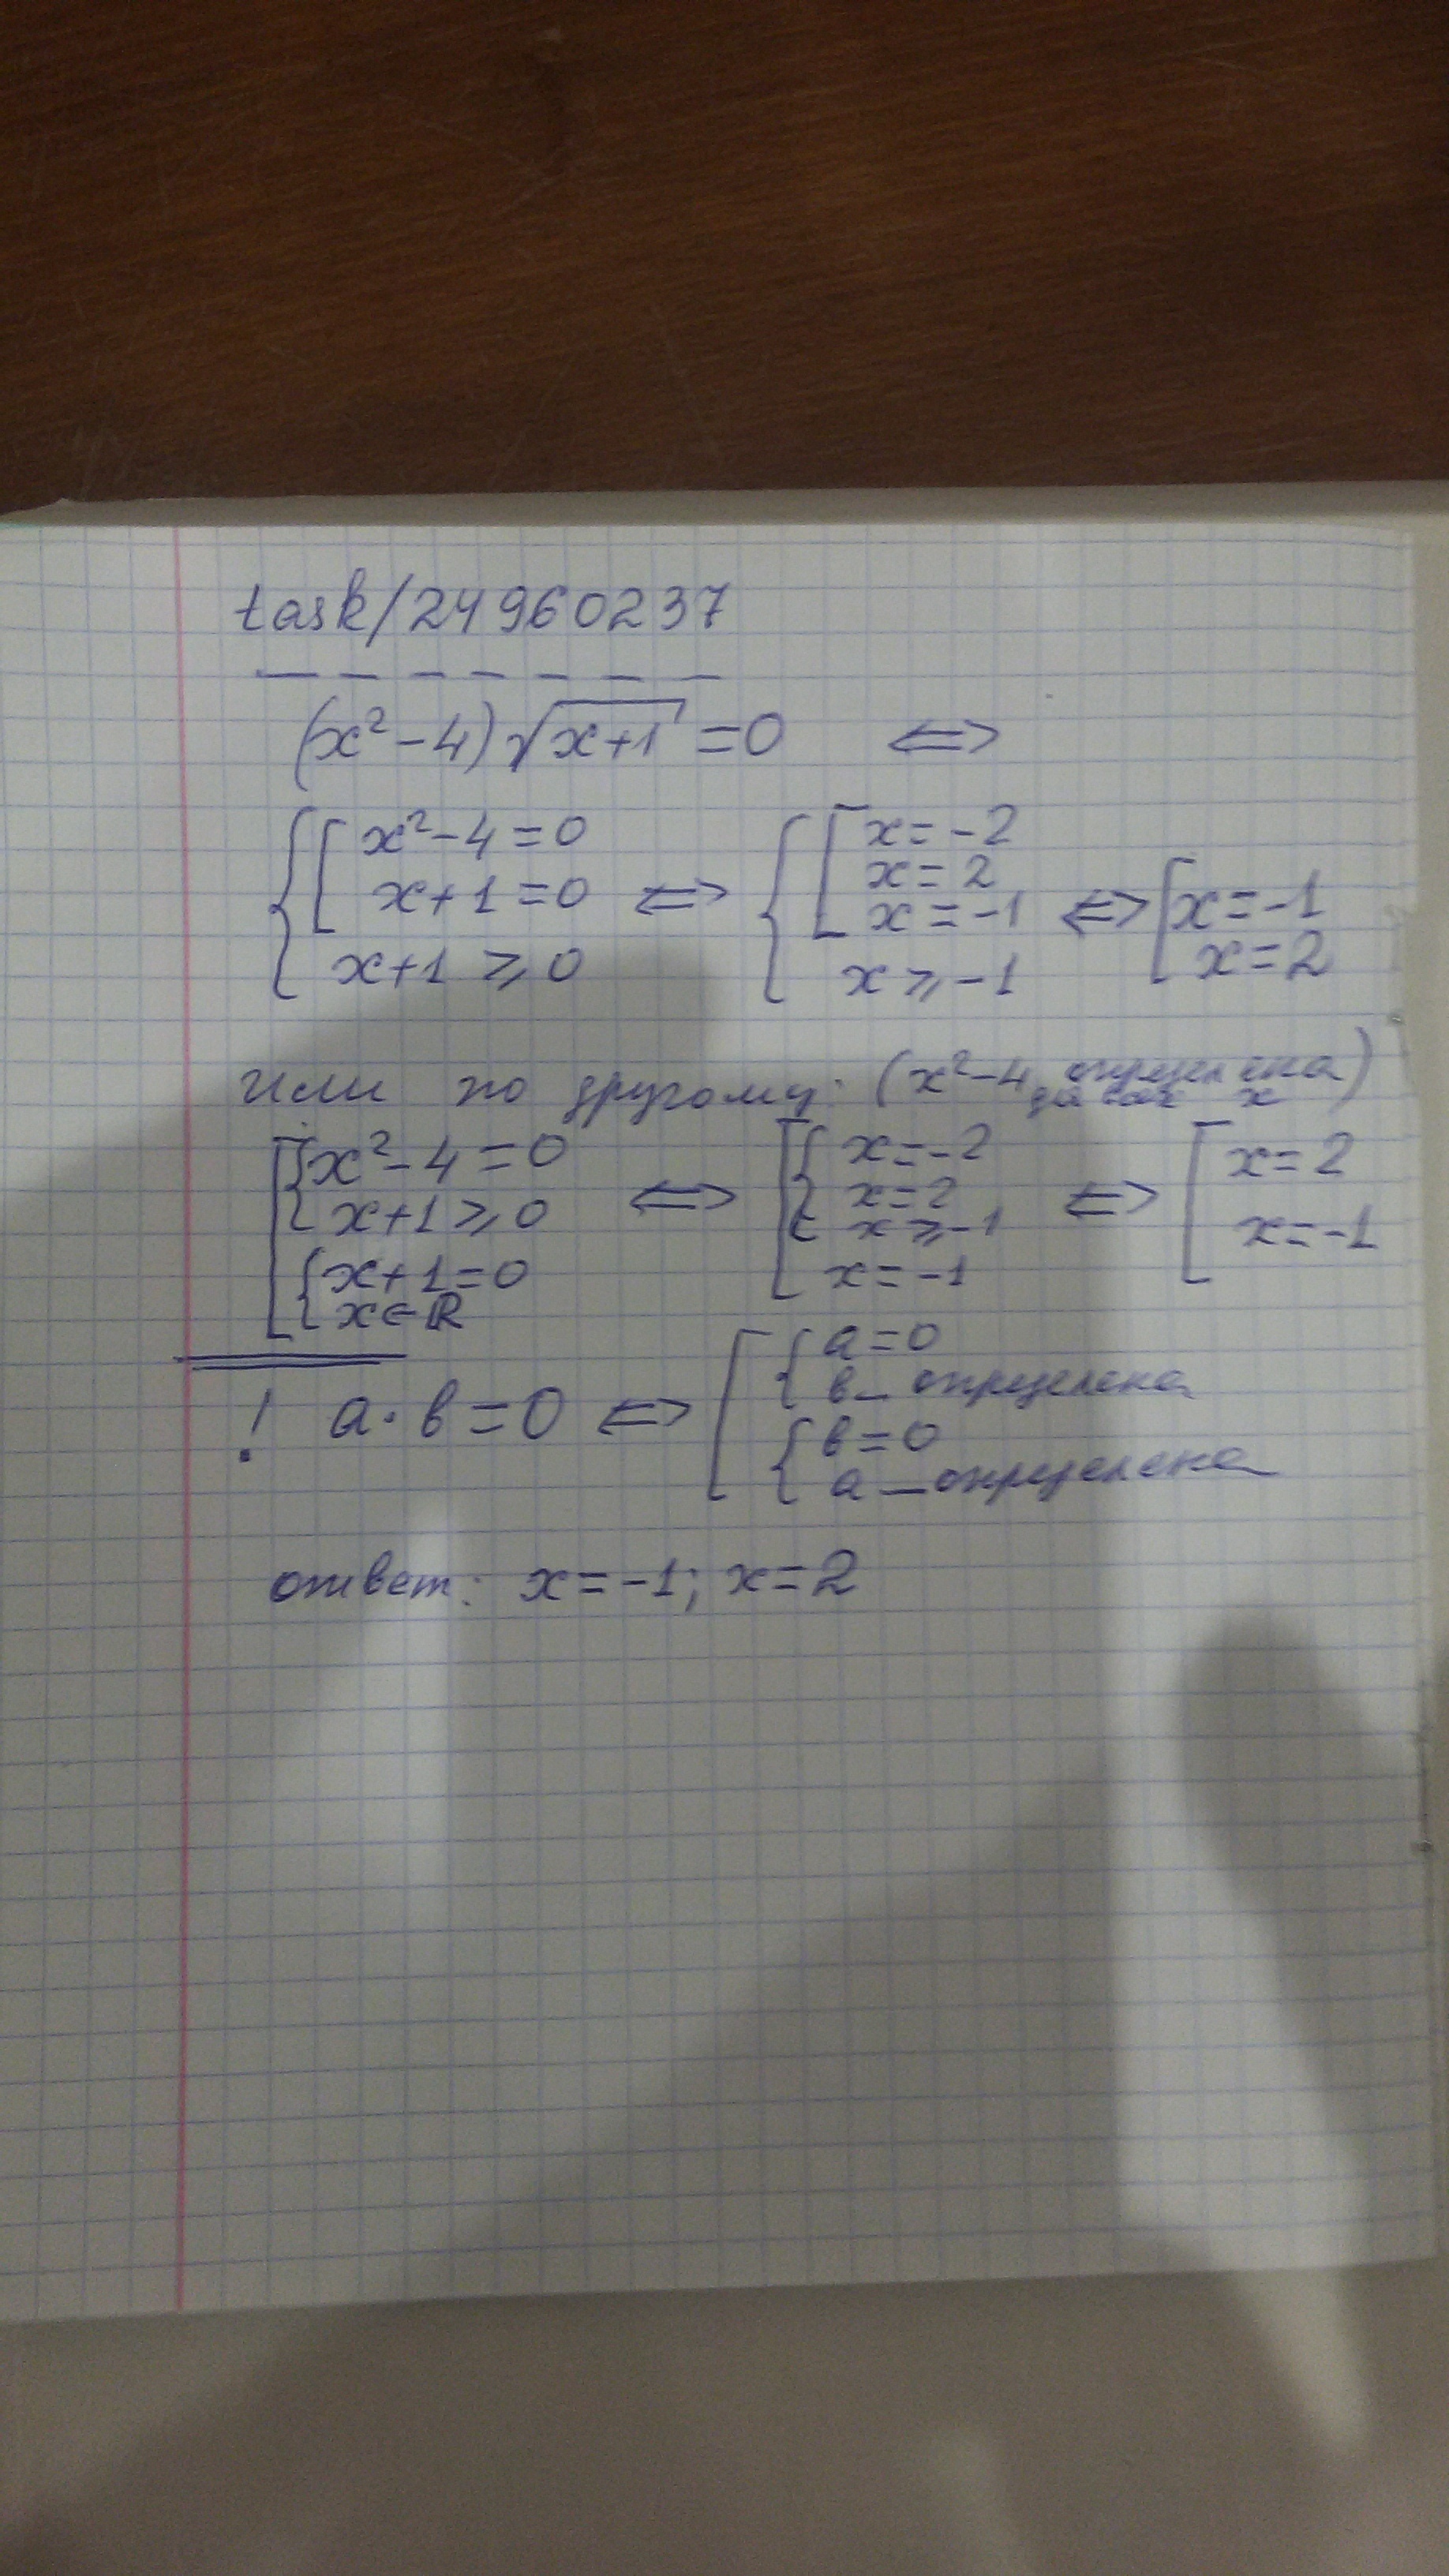 task/24960237
(x²-4)√(x+1) = 0 ⇔
{ [ x²-4=0 x+1=0 x+1⩾0 ⇔ { [ x=-2 x=2 x=-1 x⩾-1 ⇔ [ x=-1 x=2
или по другому: (x²-4 определена x)
[ { x²-4=0 x+1⩾0 { x+1=0 x∈ℝ ⇔ [ { [ x=-2 x=2 x⩾-1 x=-1 ⇔ [ x=2 x=-1
! a·b=0 ⇔ [ { a=0 b – определена { b=0 a – определена
ответ: x=-1; x=2